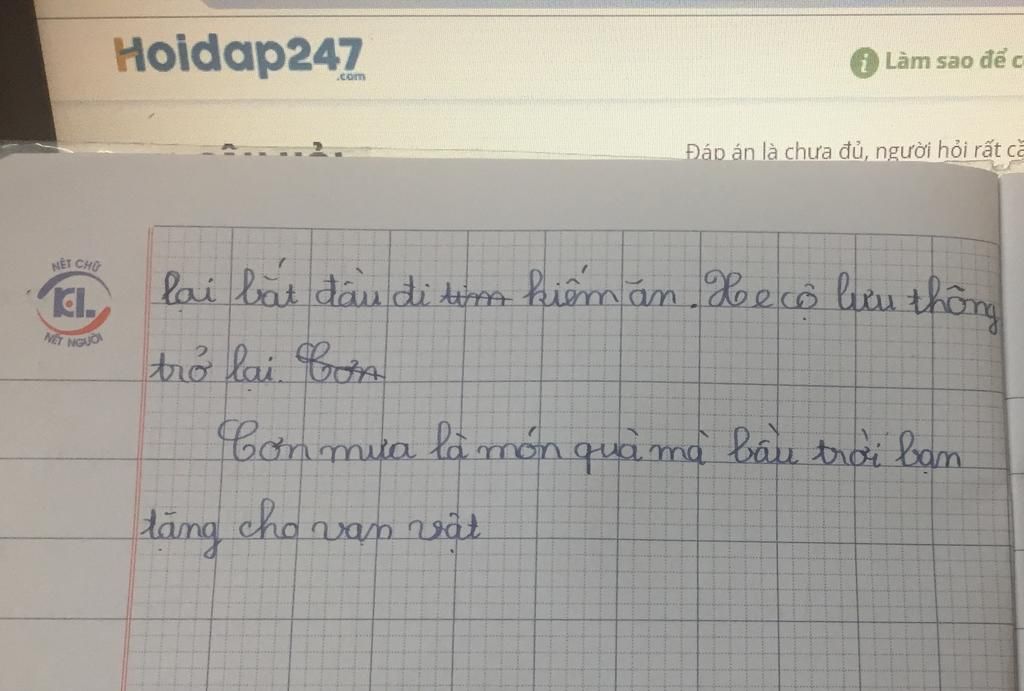 Hoidap247
.com
Làm sao để c
Đáp án là chưa đủ, người hỏi rất cầ
NÉT CHỮ
KL
NÉT NGƯỜI
lại bắt đầu đi tìm kiếm ăn. Xe cộ lưu thông
trở lại. Cơn
Cơn mưa là món quà mà bầu trời bạn
tặng cho vạn vật